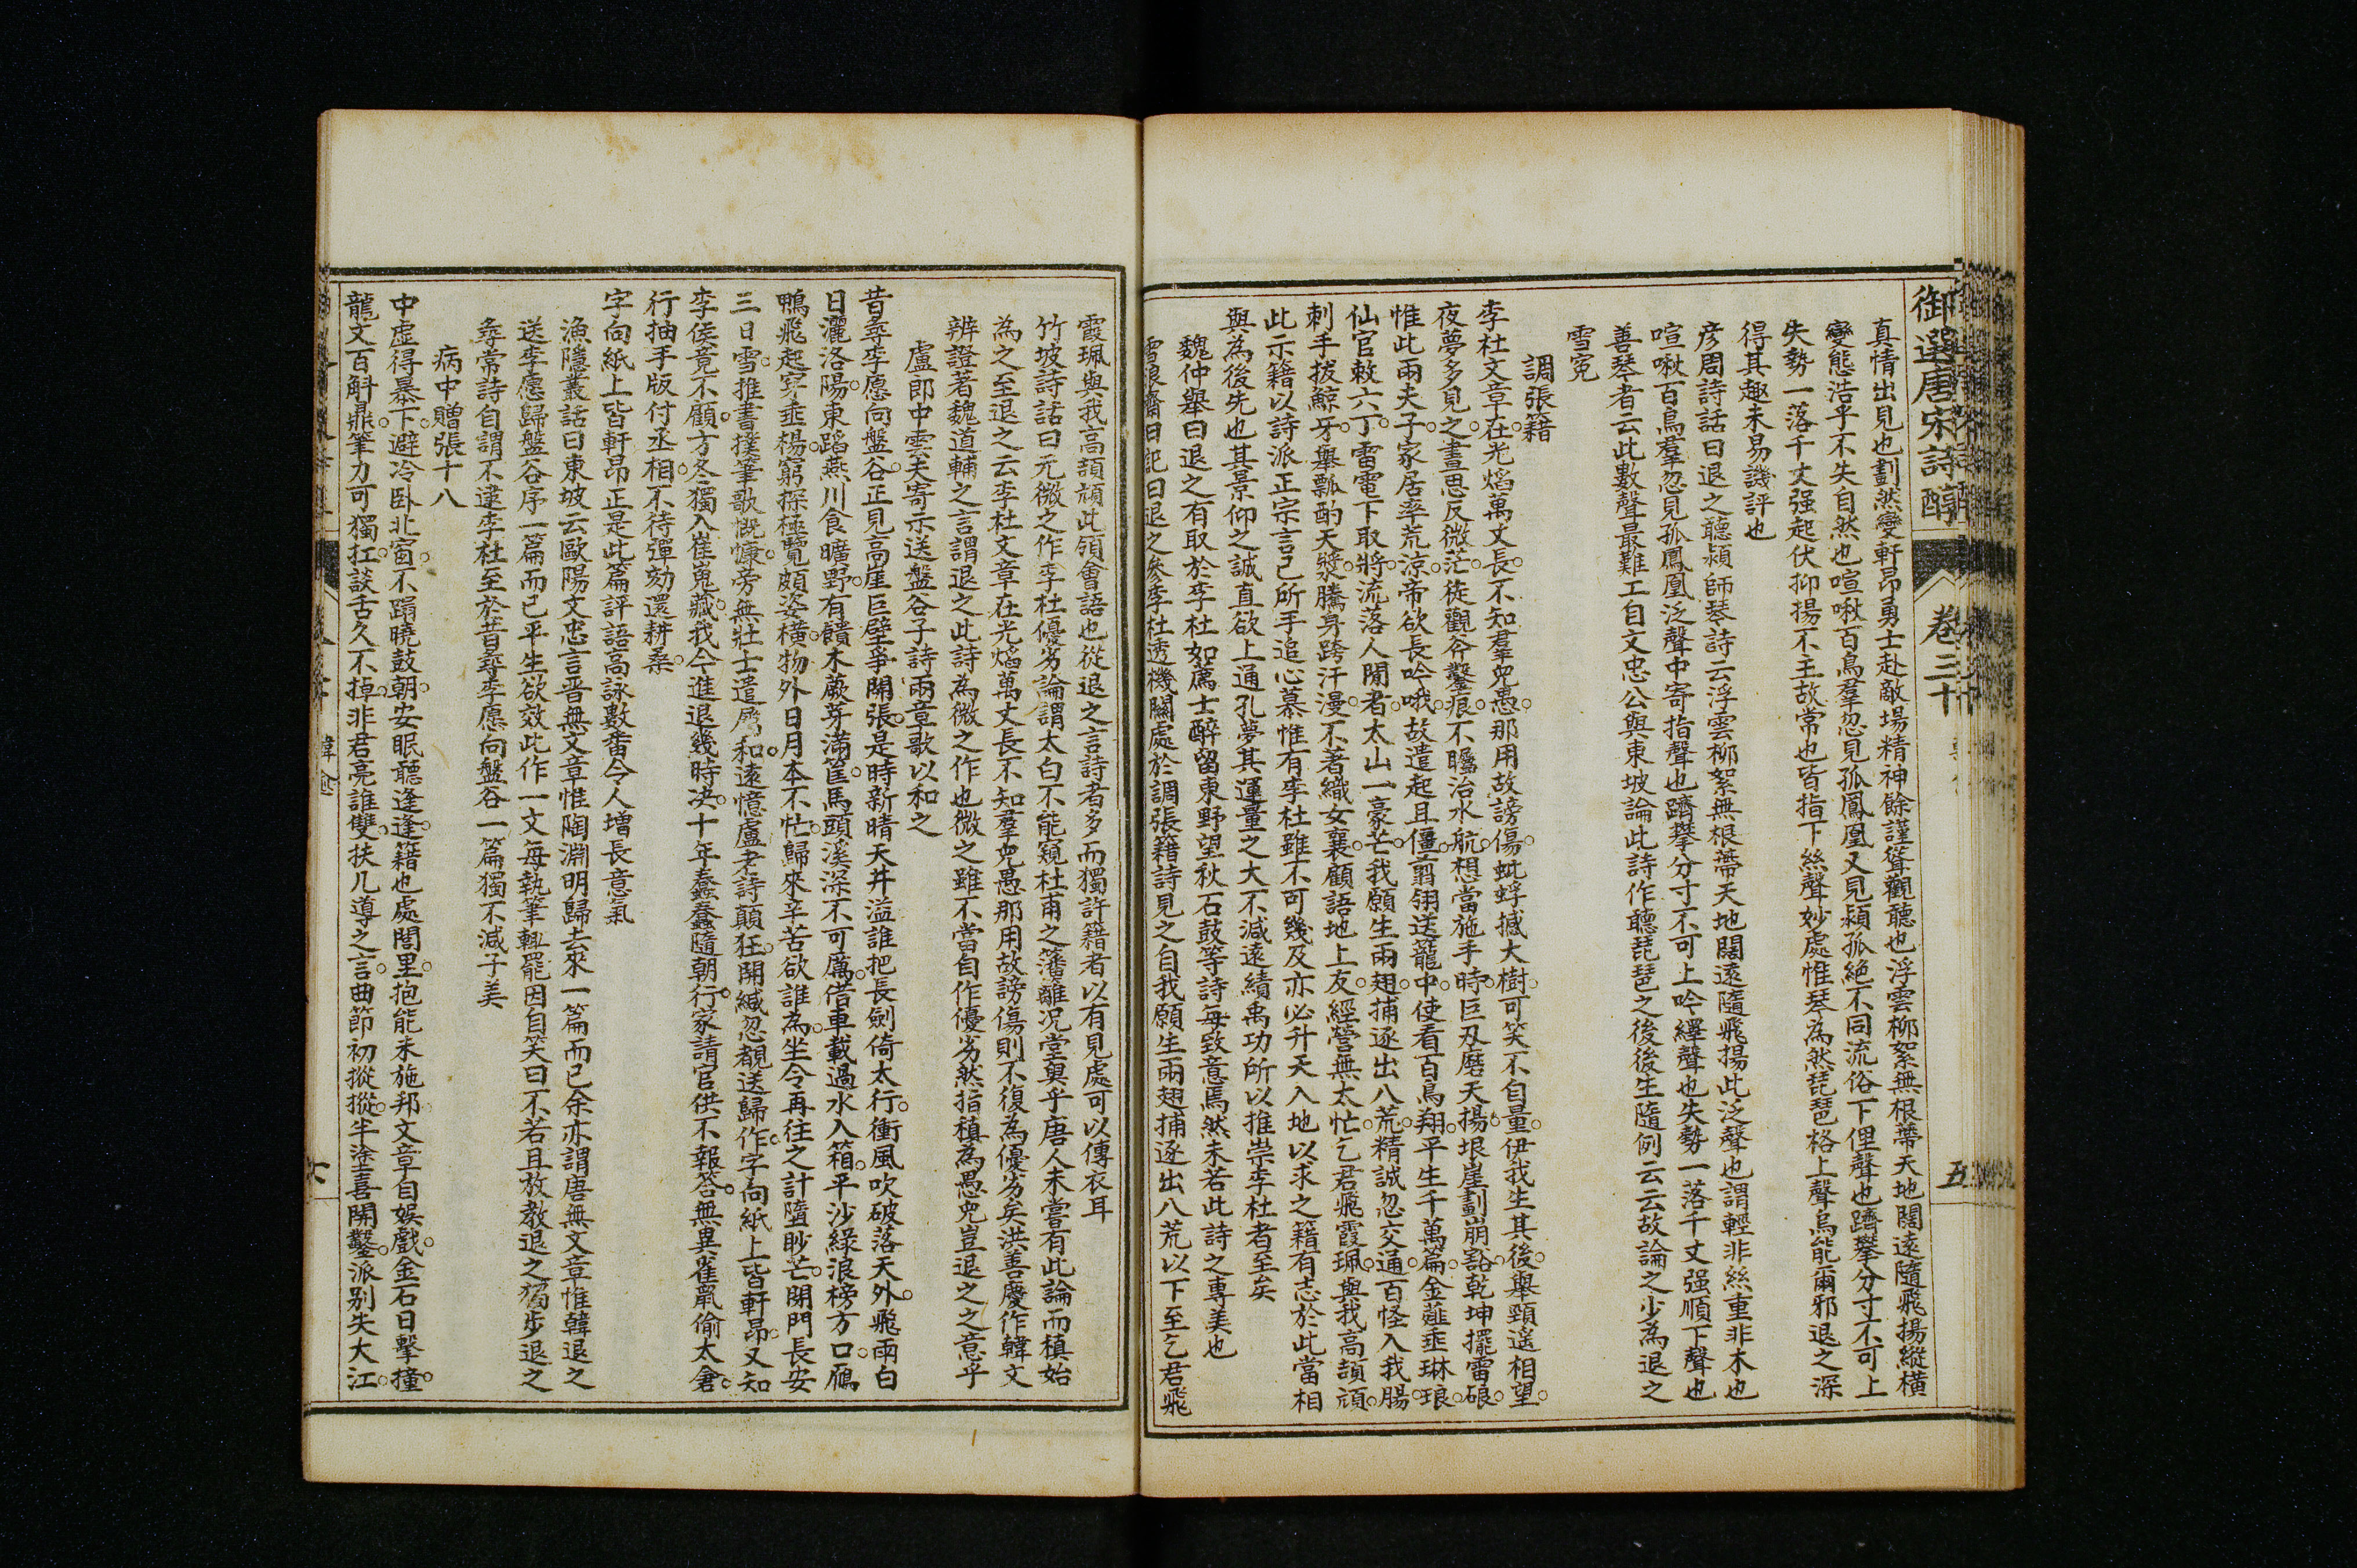 御選唐宋詩醇
卷三十
五
真情出見也劃然變軒昂勇士赴敵場精神餘謹聳觀聽也浮雲柳絮無根蒂天地闊遠隨飛揚縱橫
變態浩乎不失自然也喧啾百鳥羣忽見孤鳳凰又見潁孤絶不同流俗下俚聲也躋攀分寸不可上
失勢一落千丈强起伏抑揚不主故常也皆指下絲聲妙處惟琴為然琵琶格上聲烏能爾邪退之深
得其趣未易譏評也
彦周詩話曰退之聽潁師琴詩云浮雲柳絮無根蒂天地闊遠隨飛揚此泛聲也謂輕非絲重非木也
喧啾百鳥羣忽見孤鳳凰泛聲中寄指聲也躋攀分寸不可上吟繹聲也失勢一落千丈强順下聲也
善琴者云此數聲最難工自文忠公與東坡論此詩作聽琵琶之後後生隨例云云故論之少為退之
雪寃
調張籍
李杜文章在光燄萬丈長不知羣兒愚那用故謗傷蚍蜉撼大樹可笑不自量伊我生其後舉頸遥相望
夜夢多見之晝思反微茫徒觀斧鑿痕不矚治水航想當施手時巨刃磨天揚垠崖劃崩豁乾坤擺雷硠
惟此兩夫子家居率荒涼帝欲長吟哦故遣起且僵剪翎送籠中使看百鳥翔平生千萬篇金薤垂琳琅
仙官敕六丁雷電下取將流落人間者太山一豪芒我願生兩翅捕逐出八荒精誠忽交通百怪入我腸
刺手拔鯨牙舉瓢酌天漿騰身跨汗漫不著織女襄顧語地上友經營無太忙乞君飛霞珮與我高頡頏
此示籍以詩派正宗言己所手追心慕惟有李杜雖不可幾及亦必升天入地以求之籍有志於此當相
與為後先也其景仰之誠直欲上通孔夢其運量之大不減遠績禹功所以推崇李杜者至矣
魏仲舉曰退之有取於李杜如薦士醉留東野望秋石鼓等詩每致意焉然未若此詩之專美也
雪浪齋日記曰退之參李杜透機關處於調張籍詩見之自我願生兩翅捕逐出八荒以下至乞君飛
霞珮與我高頡頏此領會語也從退之言詩者多而獨許籍者以有見處可以傳衣耳
竹坡詩話曰元微之作李杜優劣論謂太白不能窺杜甫之籓籬況堂奥乎唐人未嘗有此論而稹始
為之至退之云李杜文章在光燄萬丈長不知羣兒愚那用故謗傷則不復為優劣矣洪善慶作韓文
辨證著魏道輔之言謂退之此詩為微之作也微之雖不當自作優劣然指稹為愚兒豈退之之意乎
盧郎中雲夫寄示送盤谷子詩兩章歌以和之
昔尋李愿向盤谷正見高崖巨壁爭開張是時新晴天井溢誰把長劍倚太行衝風吹破落天外飛雨白
日灑洛陽東蹈燕川食曠野有饋木蕨芽滿筐馬頭溪深不可厲借車載過水入箱平沙綠浪榜方口鴈
鴨飛起穿垂楊窮探極覽頗恣横物外日月本不忙歸來辛苦欲誰為坐令再往之計墮眇芒閉門長安
三日雪推書撲筆歌慨慷旁無壯士遣屬和遠憶盧老詩顛狂開緘忽覩送歸作字向紙上皆軒昂又知
李侯竟不顧方冬獨入崔嵬藏我今進退幾時决十年蠢蠢隨朝行家請官供不報答無異雀鼠偷太倉
行抽手版付丞相不待彈劾還耕桑
字向紙上皆軒昂正是此篇評語高詠數番令人增長意氣
漁隱叢話曰東坡云歐陽文忠言晋無文章惟陶淵明歸去來一篇而已余亦謂唐無文章惟韓退之
送李愿歸盤谷序一篇而已平生欲效此作一文每執筆輒罷因自笑曰不若且放教退之獨步退之
尋常詩自謂不逮李杜至於昔尋李愿向盤谷一篇獨不減子美
病中贈張十八
中虛得暴下避冷卧北窗不蹋曉鼓朝安眠聽逢逢籍也處閭里抱能未施邦文章自娱戲金石日擊撞
龍文百斛鼎筆力可獨扛談舌久不掉非君亮誰雙扶几導之言曲節初摐摐半塗喜開鑿派别失大江
韓愈
六